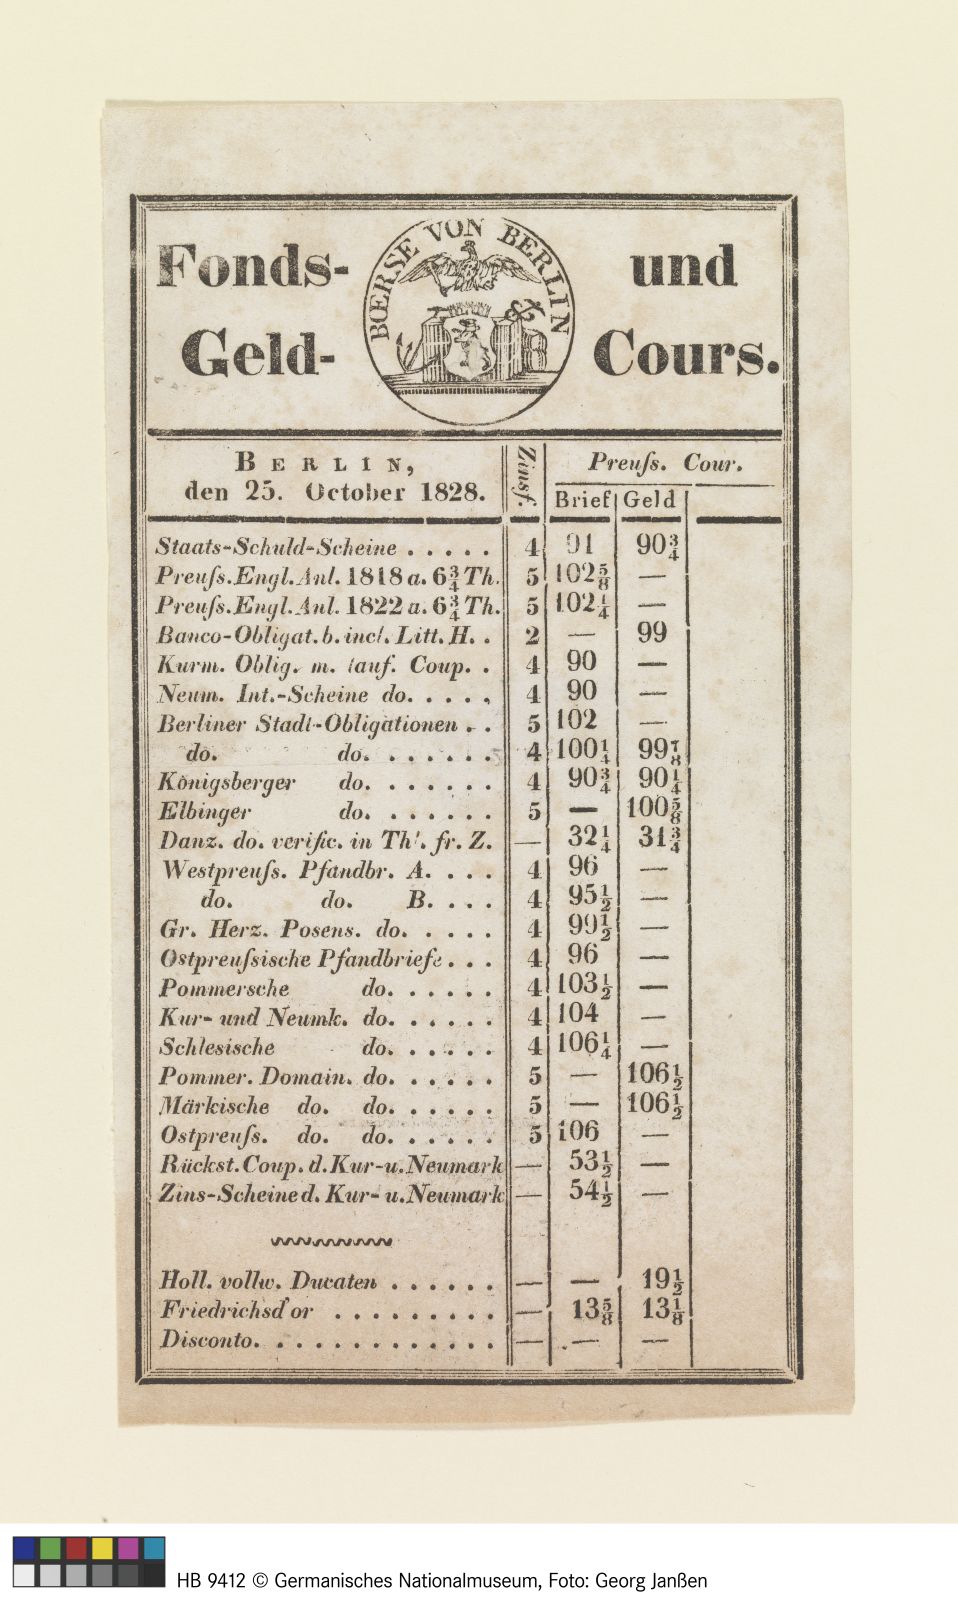 Fonds- und
BŒRSE VON BERLIN
Geld- Cours.
BERLIN,
den 25. October 1828.
Zinsf.
Preuſs. Cour.
Brief Geld
Staats-Schuld-Scheine . . . . . 4 91 90¾
Preuſs. Engl. Anl. 1818 a. 6¾ Th. 5 102⅝ —
Preuſs. Engl. Anl. 1822 a. 6¾ Th. 5 102¼ —
Banco-Obligat. b. incl. Litt. H. . 2 — 99
Kurm. Oblig. m. lauf. Coup. . 4 90 —
Neum. Int.-Scheine do. . . . . 4 90 —
Berliner Stadt-Obligationen . . 5 102 —
do. do. . . . . . . 4 100¼ 99⅞
Königsberger do. . . . . . . 4 90¾ 90¼
Elbinger do. . . . . . . 5 — 100⅝
Danz. do. verific. in Th'. fr. Z. — 32¼ 31¾
Westpreuſs. Pfandbr. A. . . . 4 96 —
do. do. B. . . . 4 95½ —
Gr. Herz. Posens. do. . . . . 4 99½ —
Ostpreuſsische Pfandbriefe . . . 4 96 —
Pommersche do. . . . . . 4 103½ —
Kur- und Neumk. do. . . . . . 4 104 —
Schlesische do. . . . . . 4 106¼ —
Pommer. Domain. do. . . . . . 5 — 106½
Märkische do. do. . . . . . 5 — 106½
Ostpreuſs. do. do. . . . . . 5 106 —
Rückst. Coup. d. Kur- u. Neumark — 53½ —
Zins-Scheine d. Kur- u. Neumark — 54½ —
Holl. vollw. Ducaten . . . . . . — — 19½
Friedrichsd'or . . . . . . . . . — 13⅝ 13⅛
Disconto. . . . . . . . . . . . . — — —
HB 9412 © Germanisches Nationalmuseum, Foto: Georg Janßen